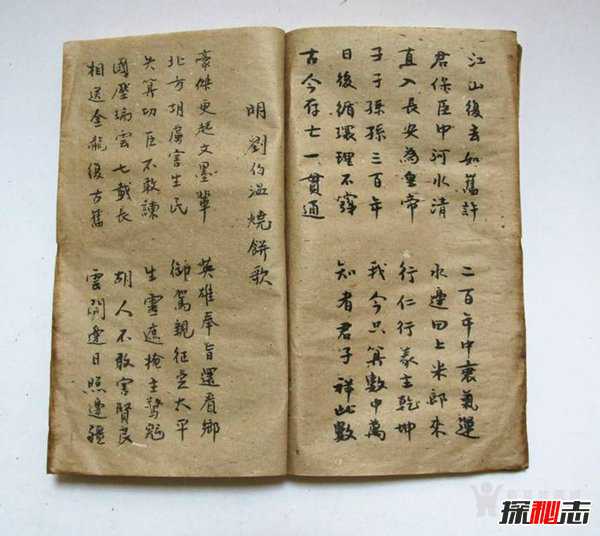 江山復去如舊許　二百年中衰氣運
君保臣中河水清　水邊田上米郎來
直入長安為皇帝　行仁行義立乾坤
子子孫孫三百年　我今只算數中萬
日後循環理不窮　知者君子祥此數
古今存亡一貫通
明　劉伯溫燒餅歌
豪傑更起文墨輩　英雄奉旨還看鄉
北方胡虜害生民　御駕親征定太平
失算功臣不敢諫　生靈遮掩主驚魂
國壓瑞雲七載長　胡人不敢害賢良
相送金龍復古舊　雲開邊日照邊疆
探秘志